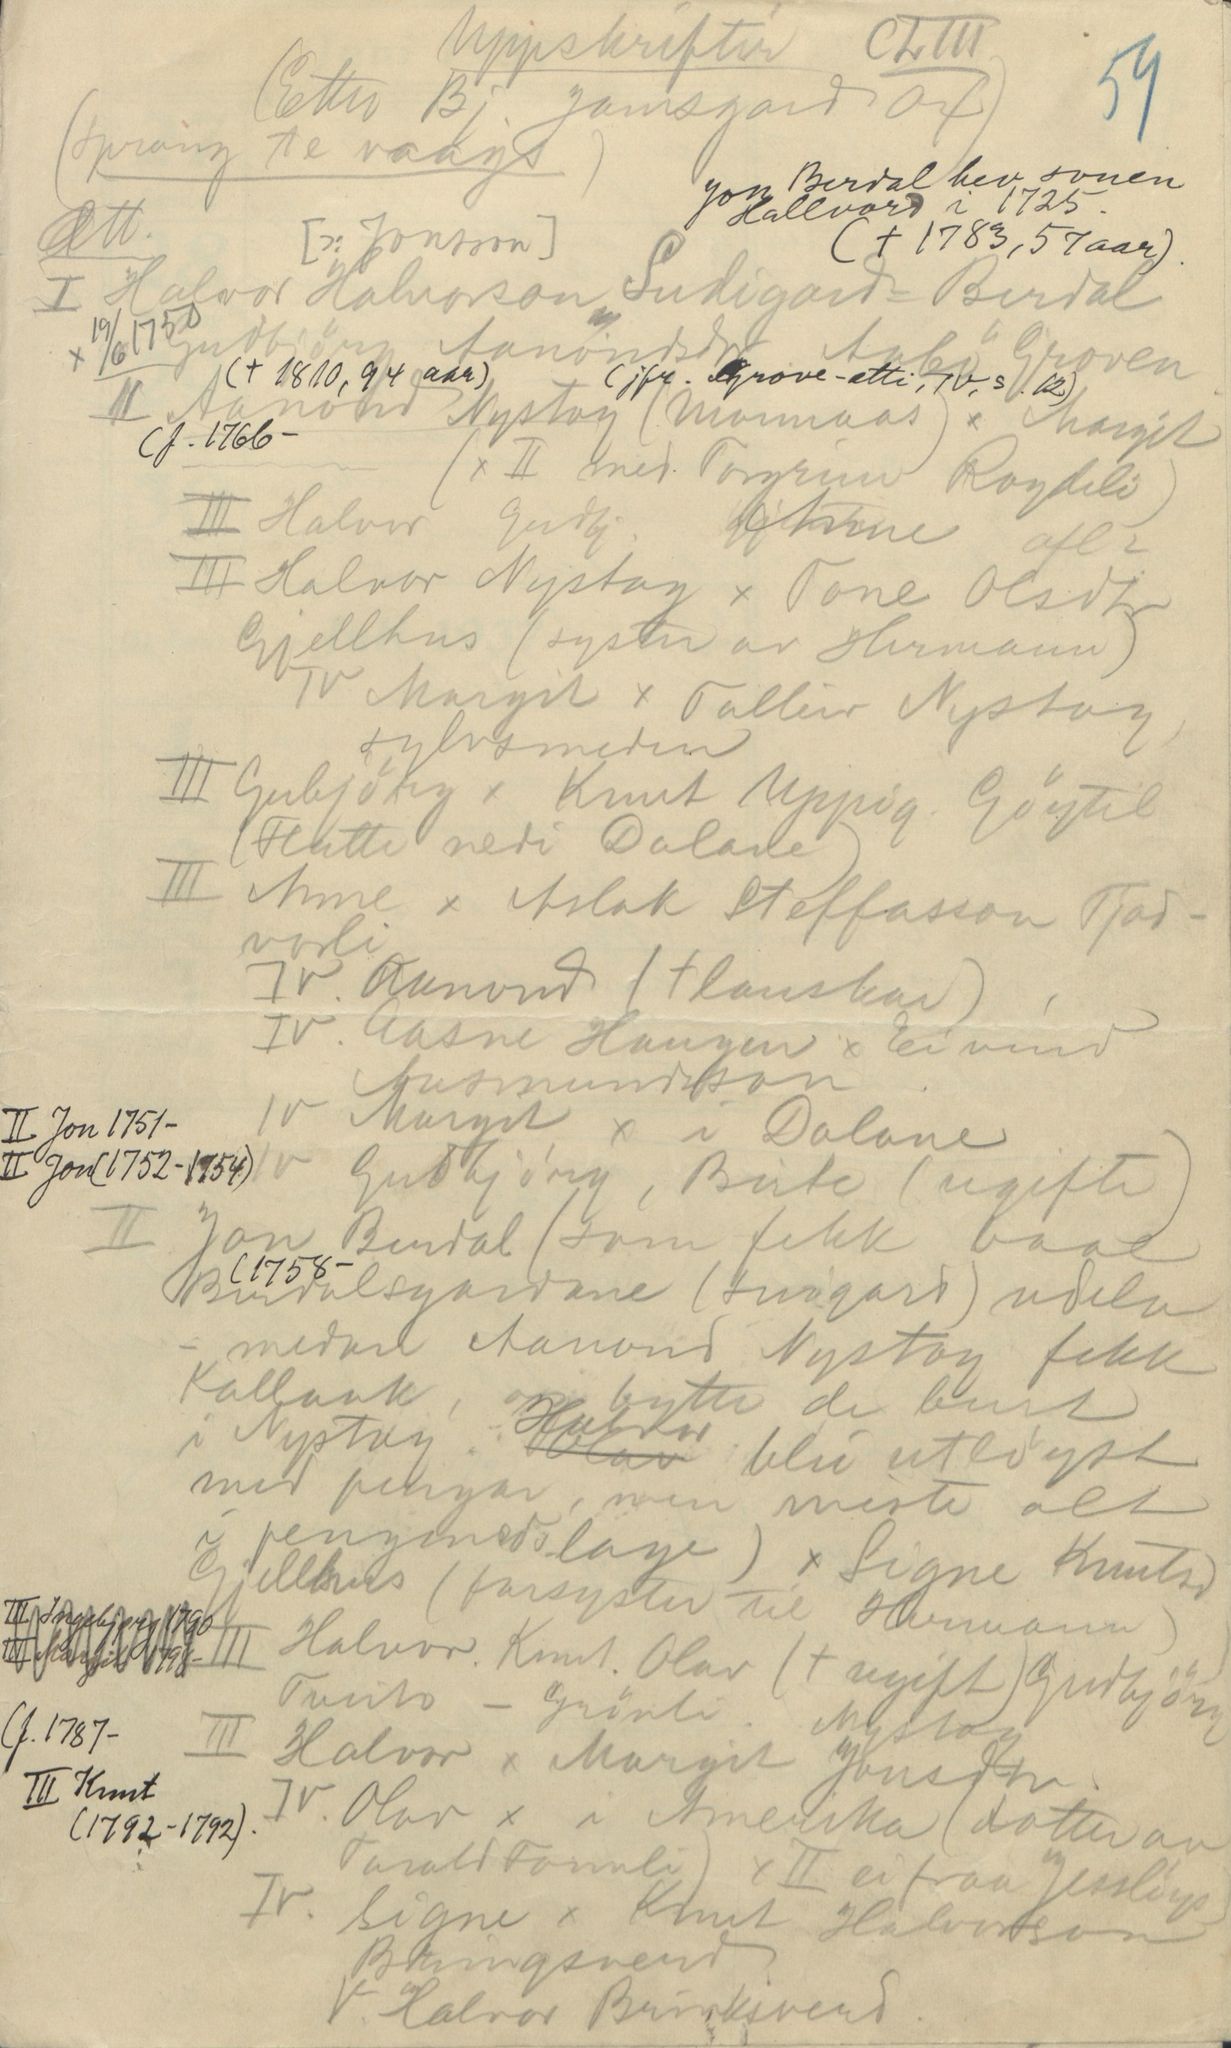 Uppskriftir CLIII
59
(Etter Bj. Jamsgard
(sprang te vaags)
Jon Berdal hev sonen
Hallvard i 1725.
(† 1783, 57 aar).
Ætt.
[ɔ: Jonsson]
I Halvor Halvorson Sudigard-Berdal
x 19/6 1750 Gudbjörg Aanondsdtr Aabö Groven
(† 1810, 94 aar) (jfr. Grove-ætti, IV, s. 12)
II Aanond Nystog (Mormoas) x Margit
(f. 1766-
(x II med Torgrim Roydeli)
III Halvor Gudbj. Anne
III Halvor Nystog x Tone Olsdtr
Gjellhus (syster av Hermann)
IV Margit x Talleiv Nystog,
sylvsmeden
III Gubjörg x Knut Uppig. Göytil
(Flutte nedi Dalane)
III Anne x Aslak Steffasson Tjod-
varli
IV. Aanond († lauskar)
IV. Aasne Haugen x Eivind
Aasmundson
II Jon 1751-
IV Margit x i Dalane
II Jon (1752-1754)
IV Gudbjörg, Birte (ugifte)
II Jon Berdal (som fekk baae
(1758-
Berdalsgardane (suigard) udelv
- medan Aanond Nystog fekk
Kallaak, og bytte de burt
i Nystog. Halvor Olav blei utlöyst
med pengar, men miste alt
i pengenedslage) x Signe Knutsd
Gjellhus (farsyster til Hermann)
III Ingebjörg 1790
III Margit 1798-
III Halvor. Knut. Olav († ugift) Gudbjörg
Tveito - Grönli. Nystog
(f. 1787-
III Halvor x Margit Jonsdtr.
III Knut
(1792-1792).
IV. Olav x i Amerika (dotter av
Tarald Tomli) x II ei fraa
IV. Signe x Knut Halvorson
Bringsverd
V. Halvor Brinksverd.